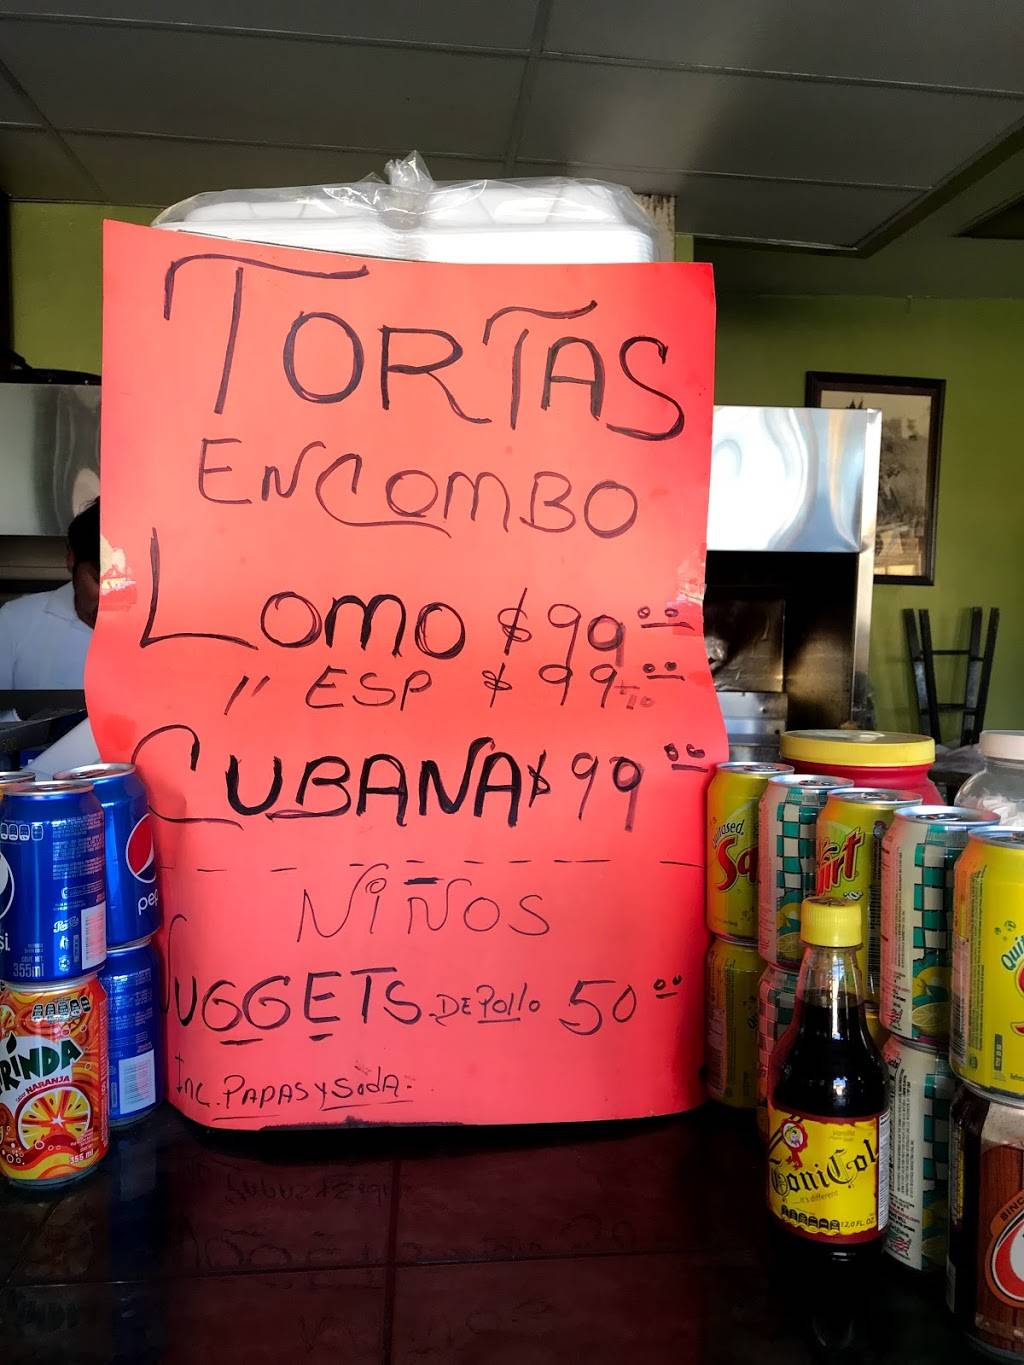 TORTAS
EN COMBO
LOMO $90.00
" ESP $99.00
CUBANA $99.00
NIÑOS
NUGGETS DE POLLO 50.00
Inc. PAPAS Y SODA.
pepsi
355ml
NARANJA
355 ml
ToniCol
Vanilla
...it's different
12.0 FL.OZ